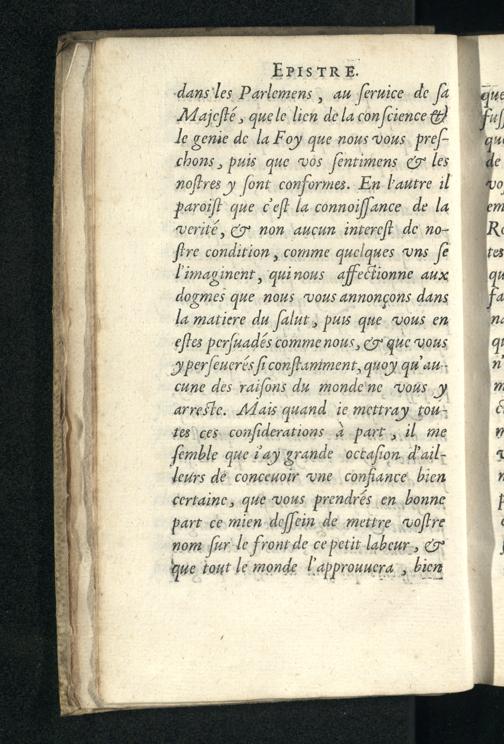 EPISTRE.
dans les Parlemens, au ſeruice de ſa
Majeſté, que le lien de la conſcience &
le genie de la Foy que nous vous preſ-
chons, puis que vos ſentimens & les
noſtres y ſont conformes. En l'autre il
paroiſt que c'eſt la connoiſſance de la
verité, & non aucun intereſt de no-
ſtre condition, comme quelques vns ſe
l'imaginent, qui nous affectionne aux
dogmes que nous vous annonçons dans
la matiere du ſalut, puis que vous en
eſtes perſuadés comme nous, & que vous
y perſeuerés ſi conſtamment, quoy qu'au-
cune des raiſons du monde ne vous y
arreſte. Mais quand ie mettray tou-
tes ces conſiderations à part, il me
ſemble que i'ay grande occaſion d'ail-
leurs de conceuoir vne confiance bien
certaine, que vous prendrés en bonne
part ce mien deſſein de mettre voſtre
nom ſur le front de ce petit labeur, &
que tout le monde l'approuuera, bien